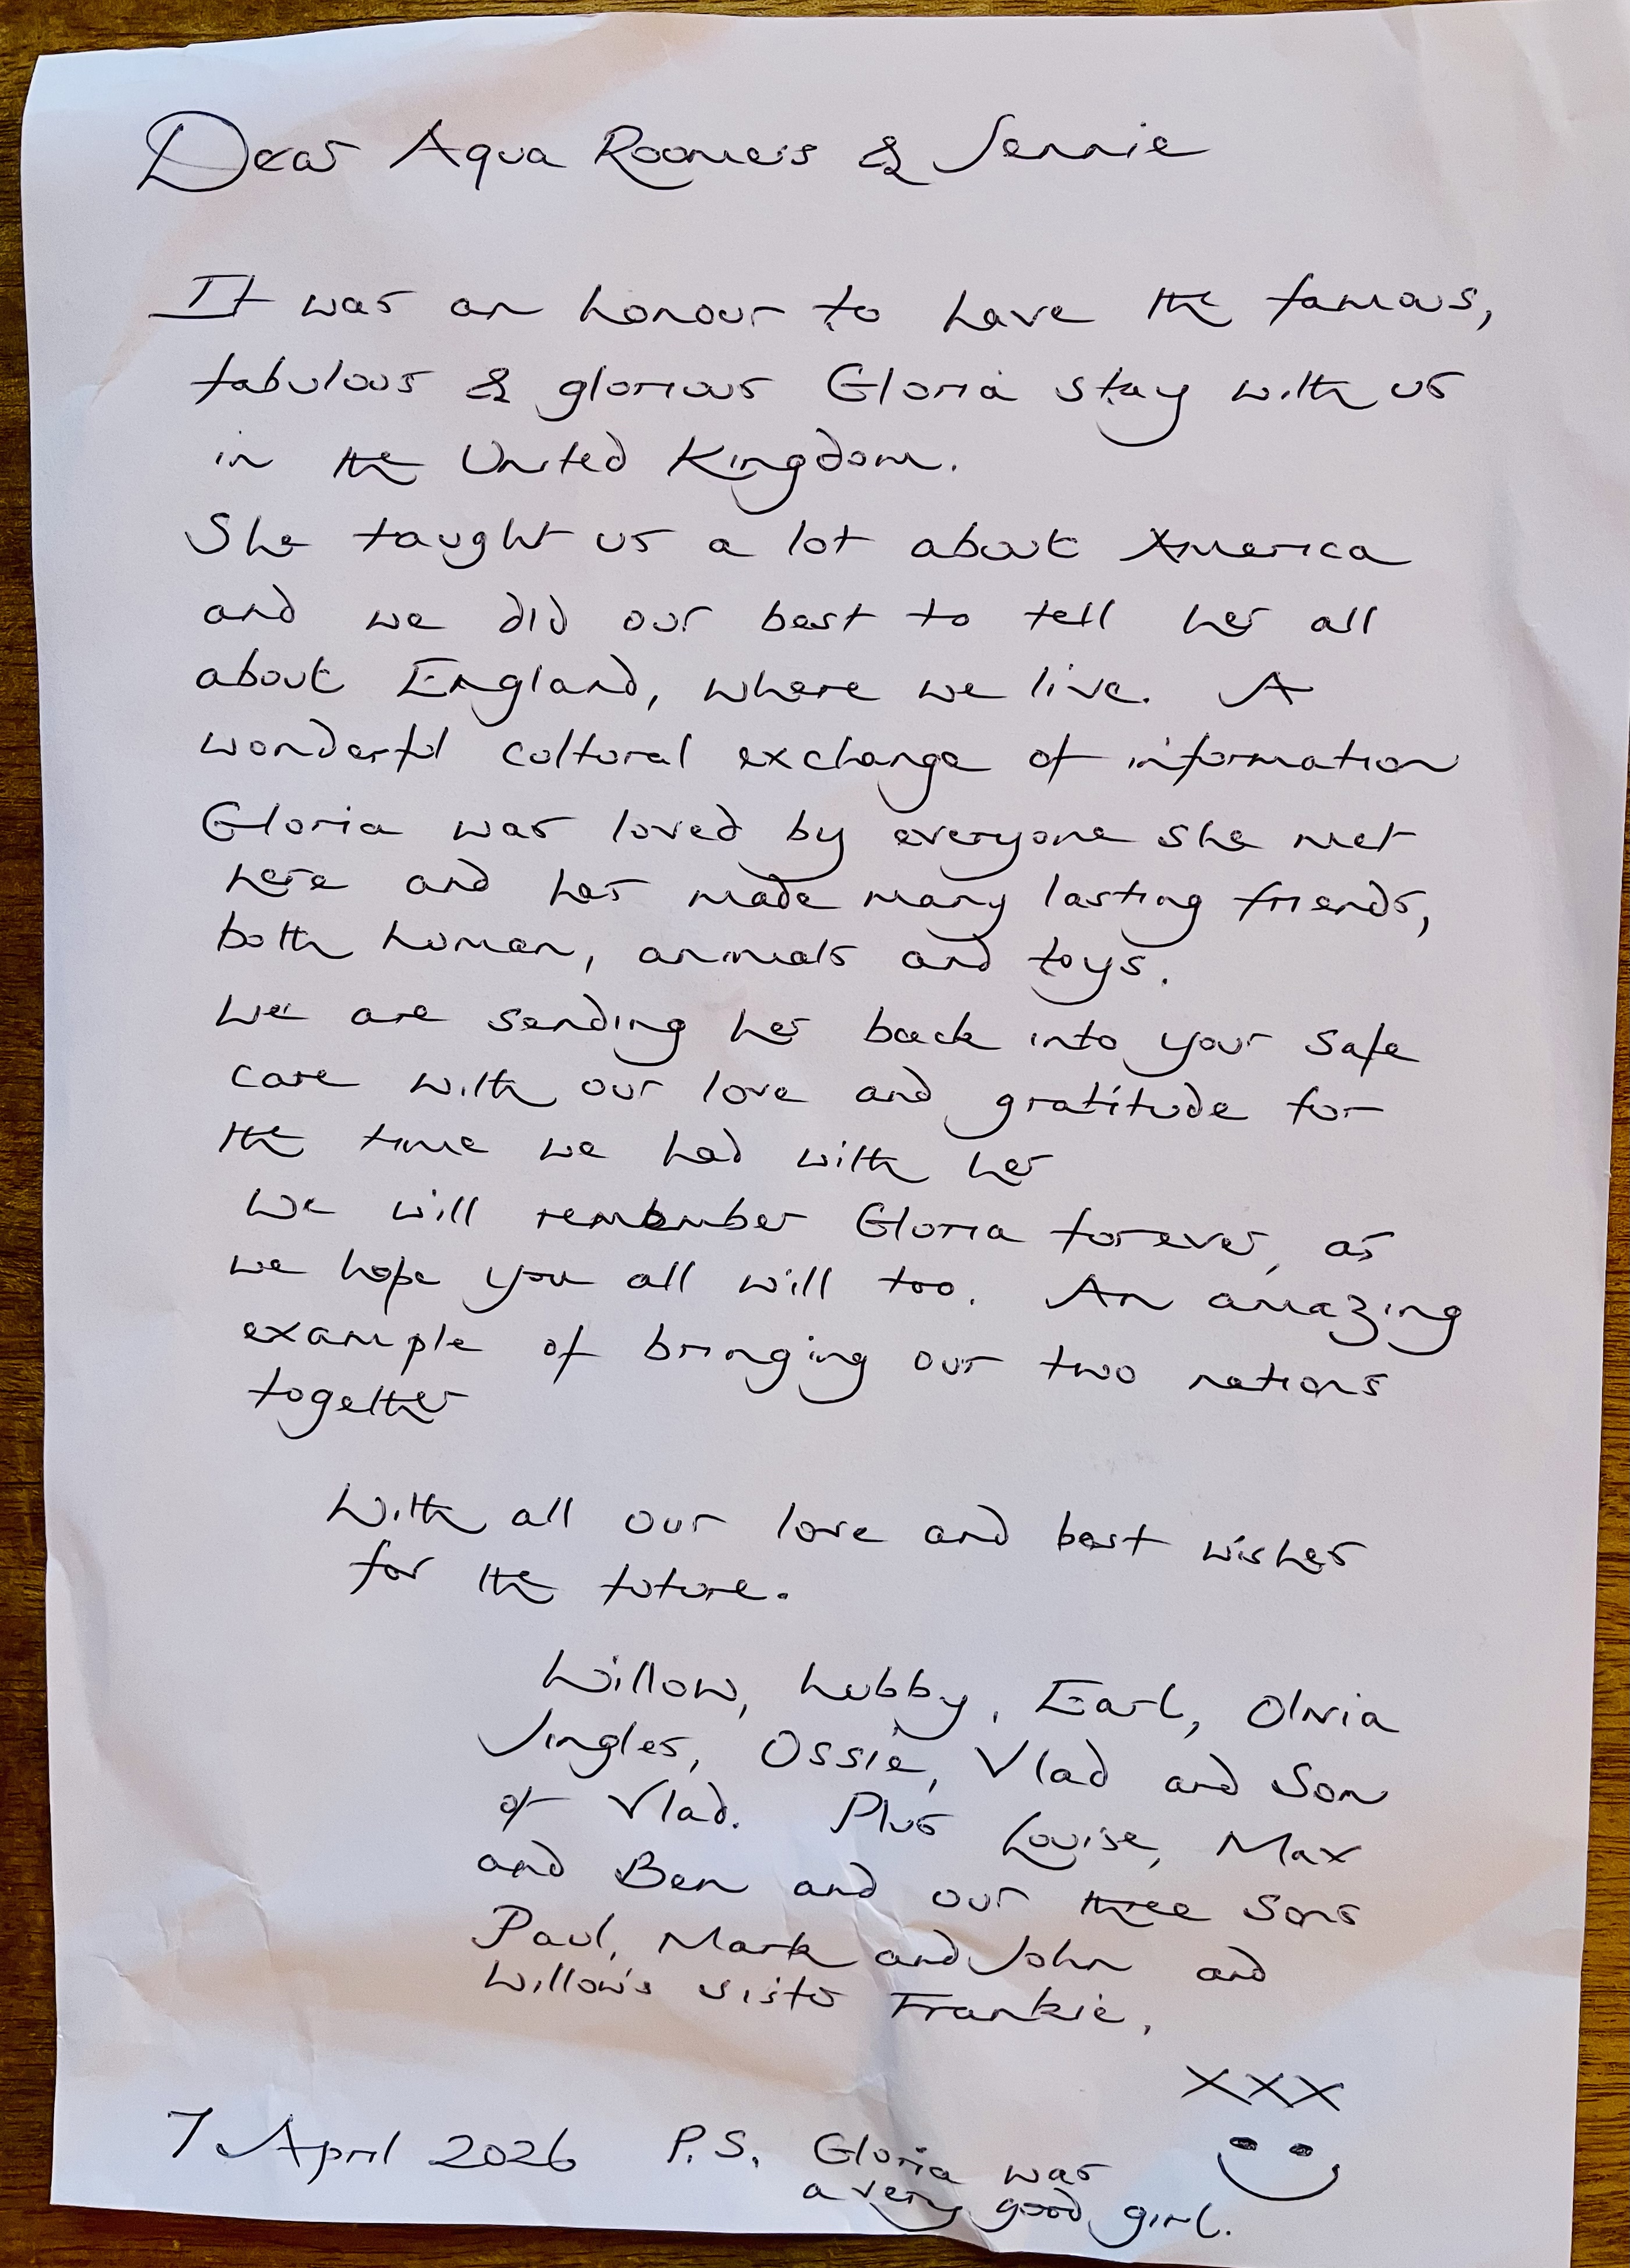 Dear Aqua Roomers & Jennie
It was an honour to have the famous,
fabulous & glorious Gloria stay with us
in the United Kingdom.
She taught us a lot about America
and we did our best to tell her all
about England, where we live. A
wonderful cultural exchange of information
Gloria was loved by everyone she met
here and has made many lasting friends,
both human, animals and toys.
We are sending her back into your safe
care with our love and gratitude for
the time we had with her
We will remember Gloria forever, as
we hope you all will too. An amazing
example of bringing our two nations
together
With all our love and best wishes
for the future.
Willow, hubby, Earl, Olivia
Jingles, Ossie, Vlad and Son
of Vlad. Plus Louise, Max
and Ben and our three sons
Paul, Mark and John and
Willow's sister Frankie.
XXX
7 April 2026 P.S. Gloria was
a very good girl.